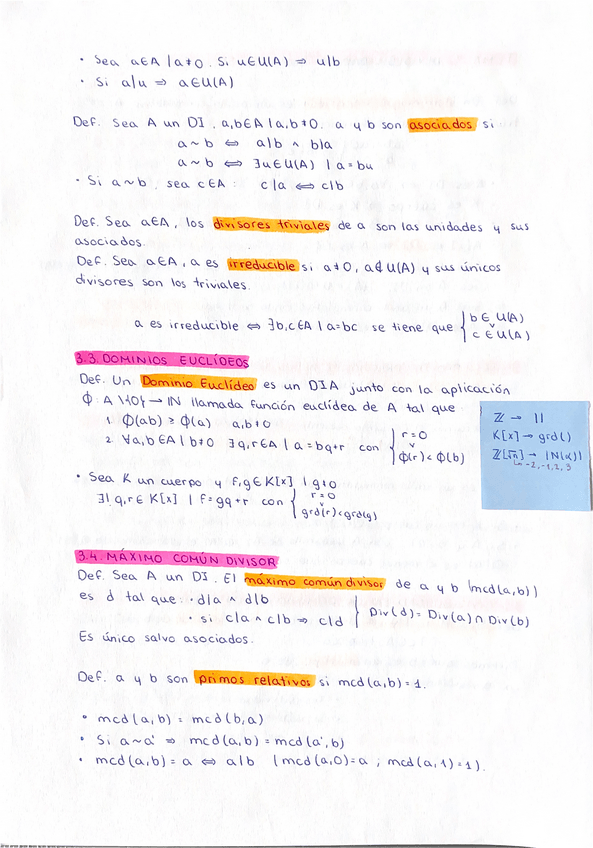 · Sea a∈A | a≠0. Si u∈U(A) ⇒ u|b
· Si a|u ⇒ a∈U(A)
Def. Sea A un DI, a,b∈A | a,b≠0. a y b son asociados si
a ~ b ⇔ a|b ∧ b|a
a ~ b ⇔ ∃u∈U(A) | a=bu
· Si a~b, sea c∈A: c|a ⇔ c|b
Def. Sea a∈A, los divisores triviales de a son las unidades y sus
asociados.
Def. Sea a∈A, a es irreducible si a≠0, a∉U(A) y sus únicos
divisores son los triviales.
a es irreducible ⇔ ∃b,c∈A | a=bc se tiene que { b∈U(A) ∨ c∈U(A)
3.3. DOMINIOS EUCLÍDEOS
Def. Un Dominio Euclídeo es un DIA junto con la aplicación
ϕ: A\{0} → ℕ llamada función euclídea de A tal que
1. ϕ(ab) ≥ ϕ(a) a,b≠0
2. ∀a,b∈A | b≠0 ∃q,r∈A | a=bq+r con { r=0 ∨ ϕ(r)<ϕ(b)
ℤ → ||
K[x] → grd()
ℤ[√n] → |N(α)|
↳ -2,-1,2,3
· Sea K un cuerpo y f,g∈K[x] | g≠0
∃! q,r∈K[x] | f=gq+r con { r=0 ∨ grd(r)<grd(g)
3.4. MÁXIMO COMÚN DIVISOR
Def. Sea A un DI. El máximo común divisor de a y b (mcd(a,b))
es d tal que: · d|a ∧ d|b
· si c|a ∧ c|b ⇒ c|d } Div(d) = Div(a) ∩ Div(b)
Es único salvo asociados.
Def. a y b son primos relativos si mcd(a,b)=1.
· mcd(a,b) = mcd(b,a)
· Si a~a' ⇒ mcd(a,b) = mcd(a',b)
· mcd(a,b) = a ⇔ a|b (mcd(a,0)=a ; mcd(a,1)=1).